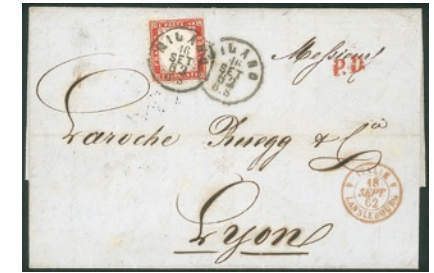 MILANO
16
SET
62
MILANO
16
SET
62
Messieurs
P.D.
Laroche Ruegg & Cie
ITALIE
18
SEPT
62
LANSLEBOURG
Lyon